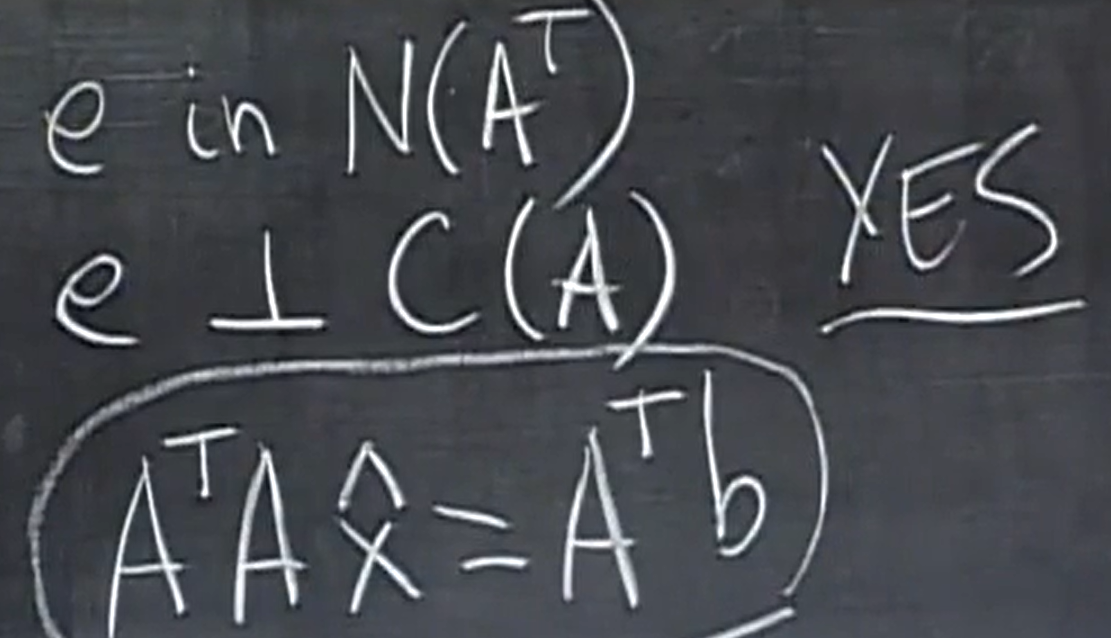 e in N(Aᵀ)
e ⊥ C(A)
YES
AᵀA x̂ = Aᵀb